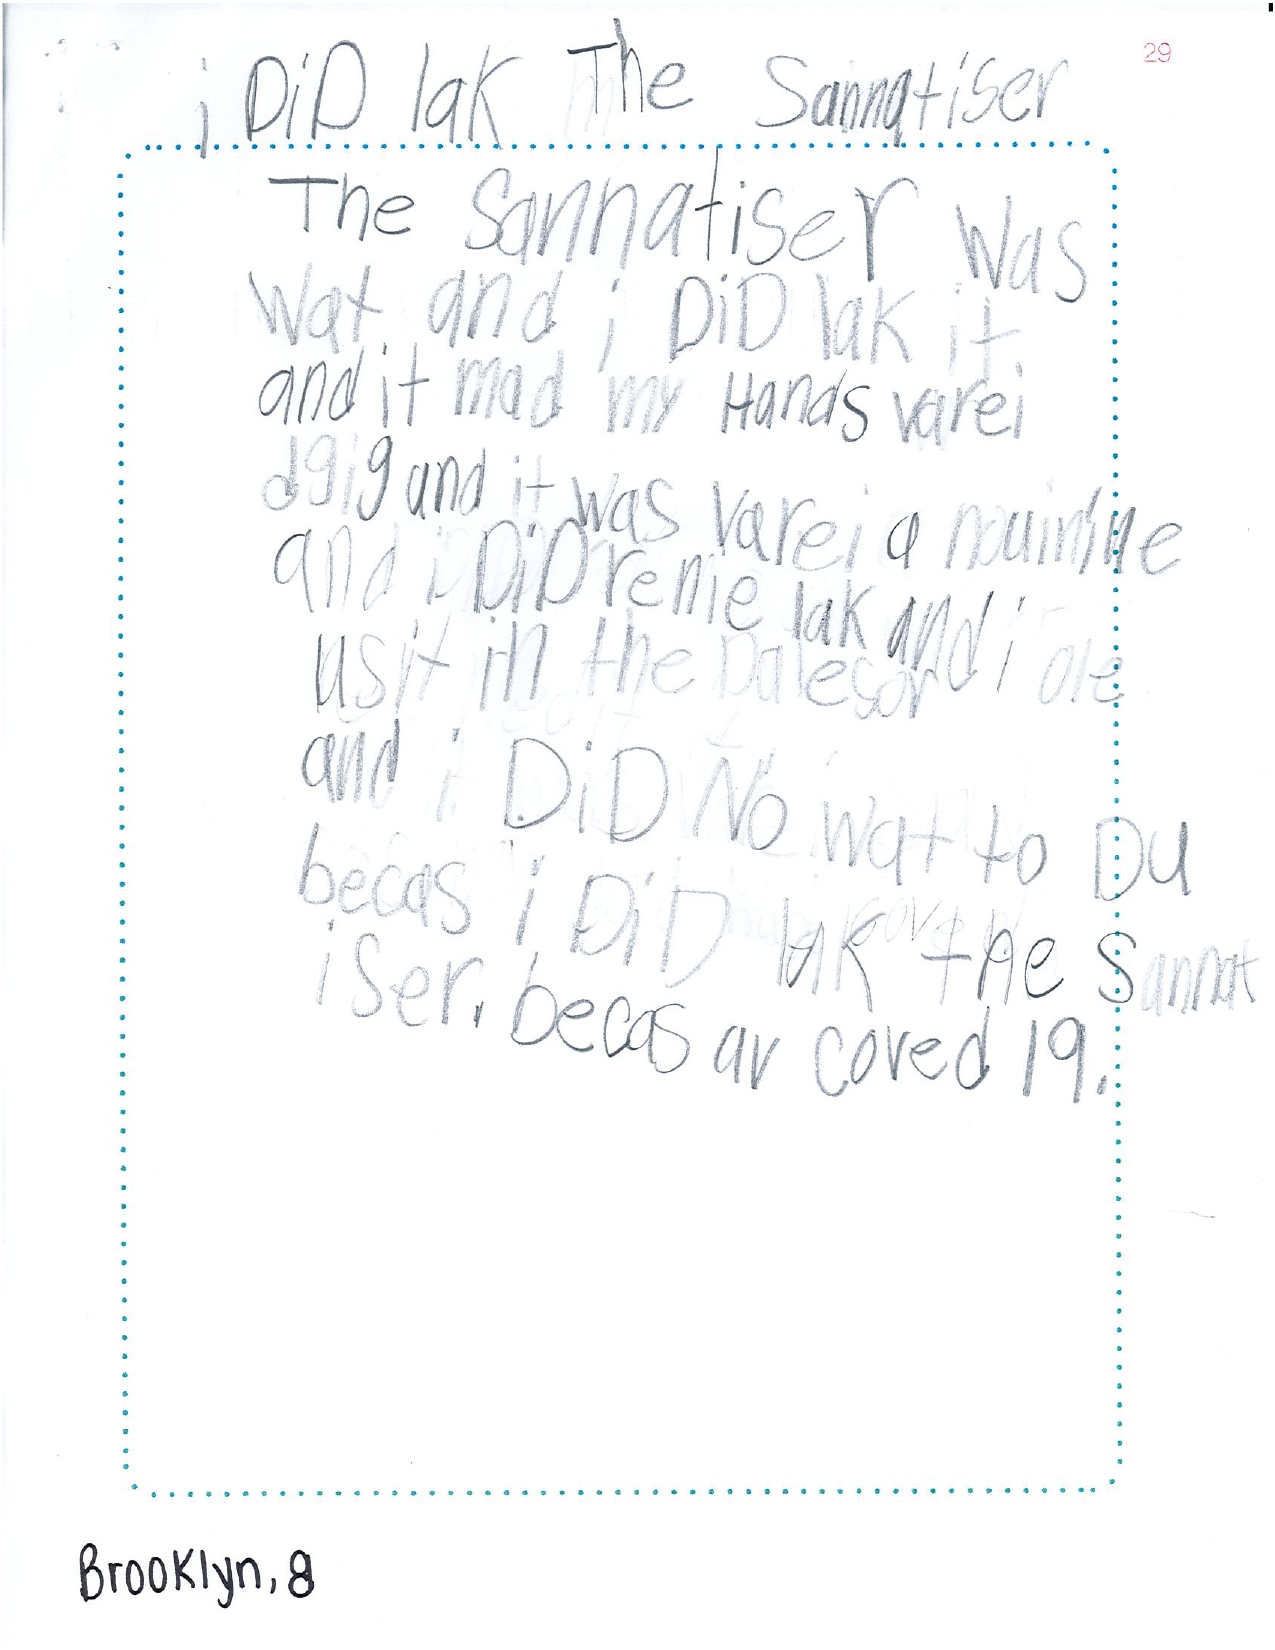 29
i DiD lak The Sannatiser
The Sannatiser was
wat and i DiD lak it
and it mad my Hands varei
and it was varei a
and i DiD lak and i ole
usit in the
and i DiD No wat to Du
becas i DiD lak the Sannat
iser. becas av coved 19.
Brooklyn, 8